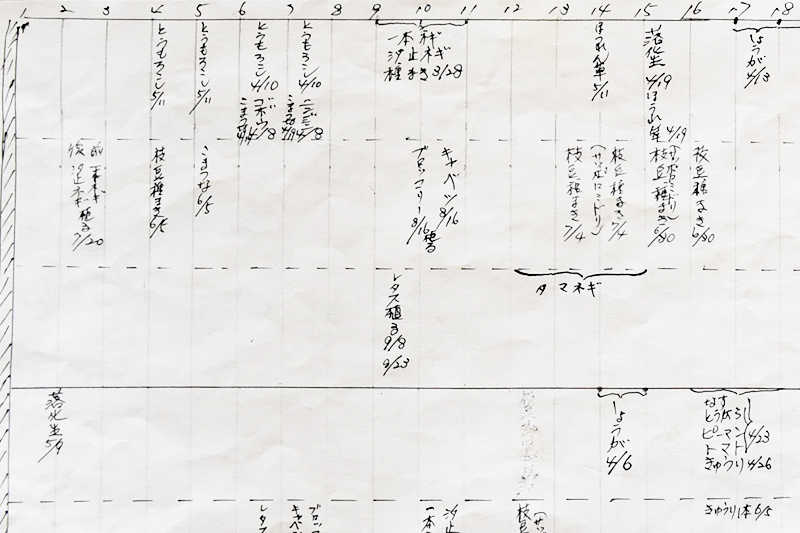 1 2 3 4 5 6 7 8 9 10 11 12 13 14 15 16 17 18
とうもろこし 5/11
とうもろこし 5/11
とうもろこし 4/10
ゴボウ 4/8
こまつな
とうもろこし 4/10
ニンジン 4/8
一本ネギ
汐止ネギ
種まき 3/28
ほうれん草 5/11
落花生 4/19
ほうれん草 4/19
しょうが 4/13
前 一本ネギ
後 汐止ネギ 植る 7/20
枝豆種まき 6/5
こまつな 6/5
キャベツ 8/16
ブロッコリー 8/16 植る
枝豆種まき 7/4
(サッポロミドリ)
枝豆種まき 7/4
枝豆種まき 6/30
(サッポロミドリ)
枝豆種まき 6/30
レタス植る 9/8
9/23
タマネギ
落花生 5/9
しょうが 4/6
なす
ピーマン
トマト
4/23
きゅうり 4/26
レタス
キャベツ
ブロッコ
一本
汐止
枝豆
きゅうり1本 6/5